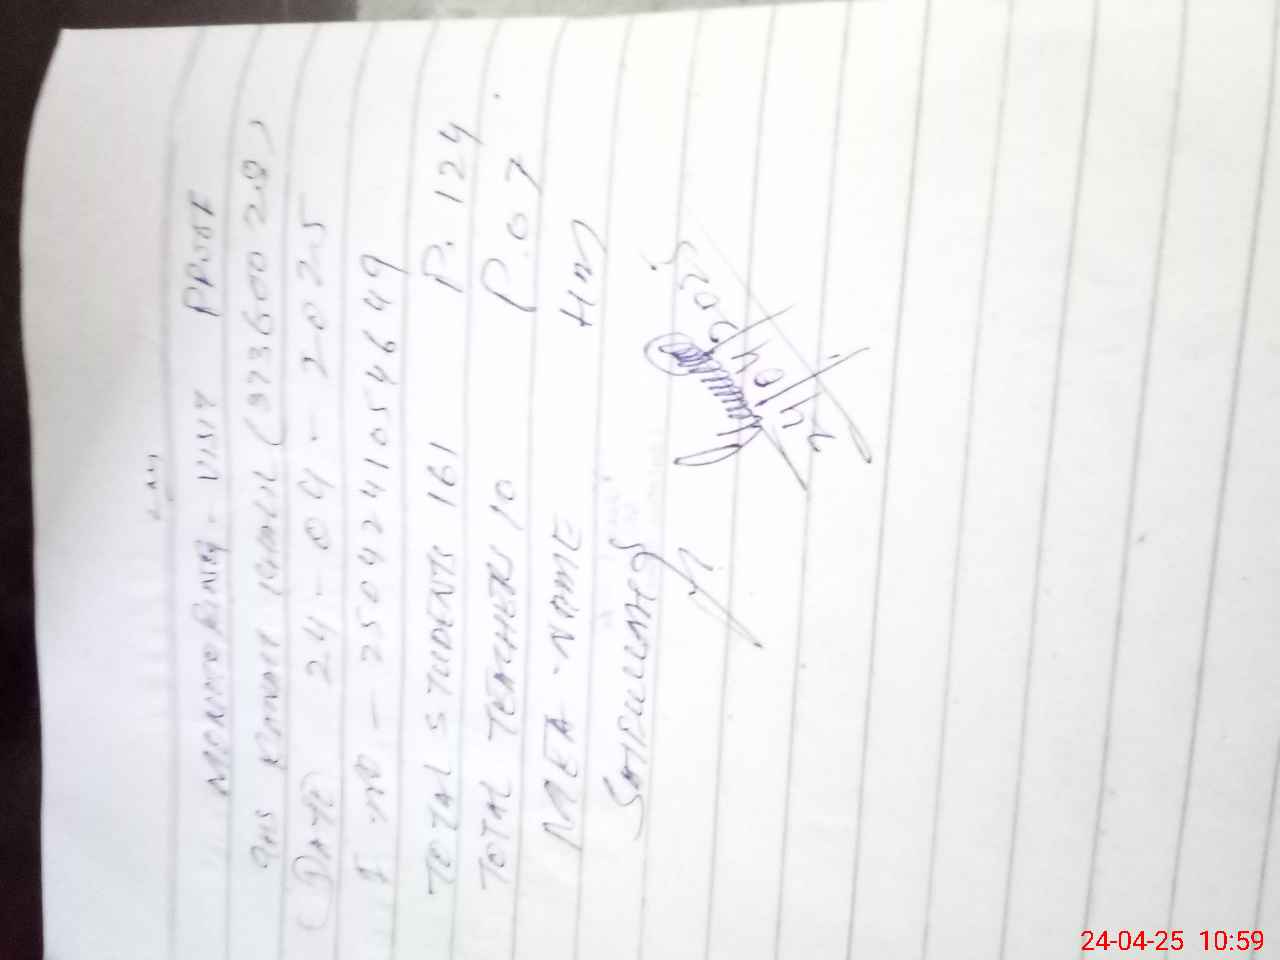 MONITORING - VISIT PROOF
GHS (37360028)
DATE 24 - 04 - 2025
- 25042410546649
TOTAL STUDENTS 161 P. 124
TOTAL TEACHERS 10 P. 07
MEA - NAME HM
24/04/2025
24-04-25 10:59